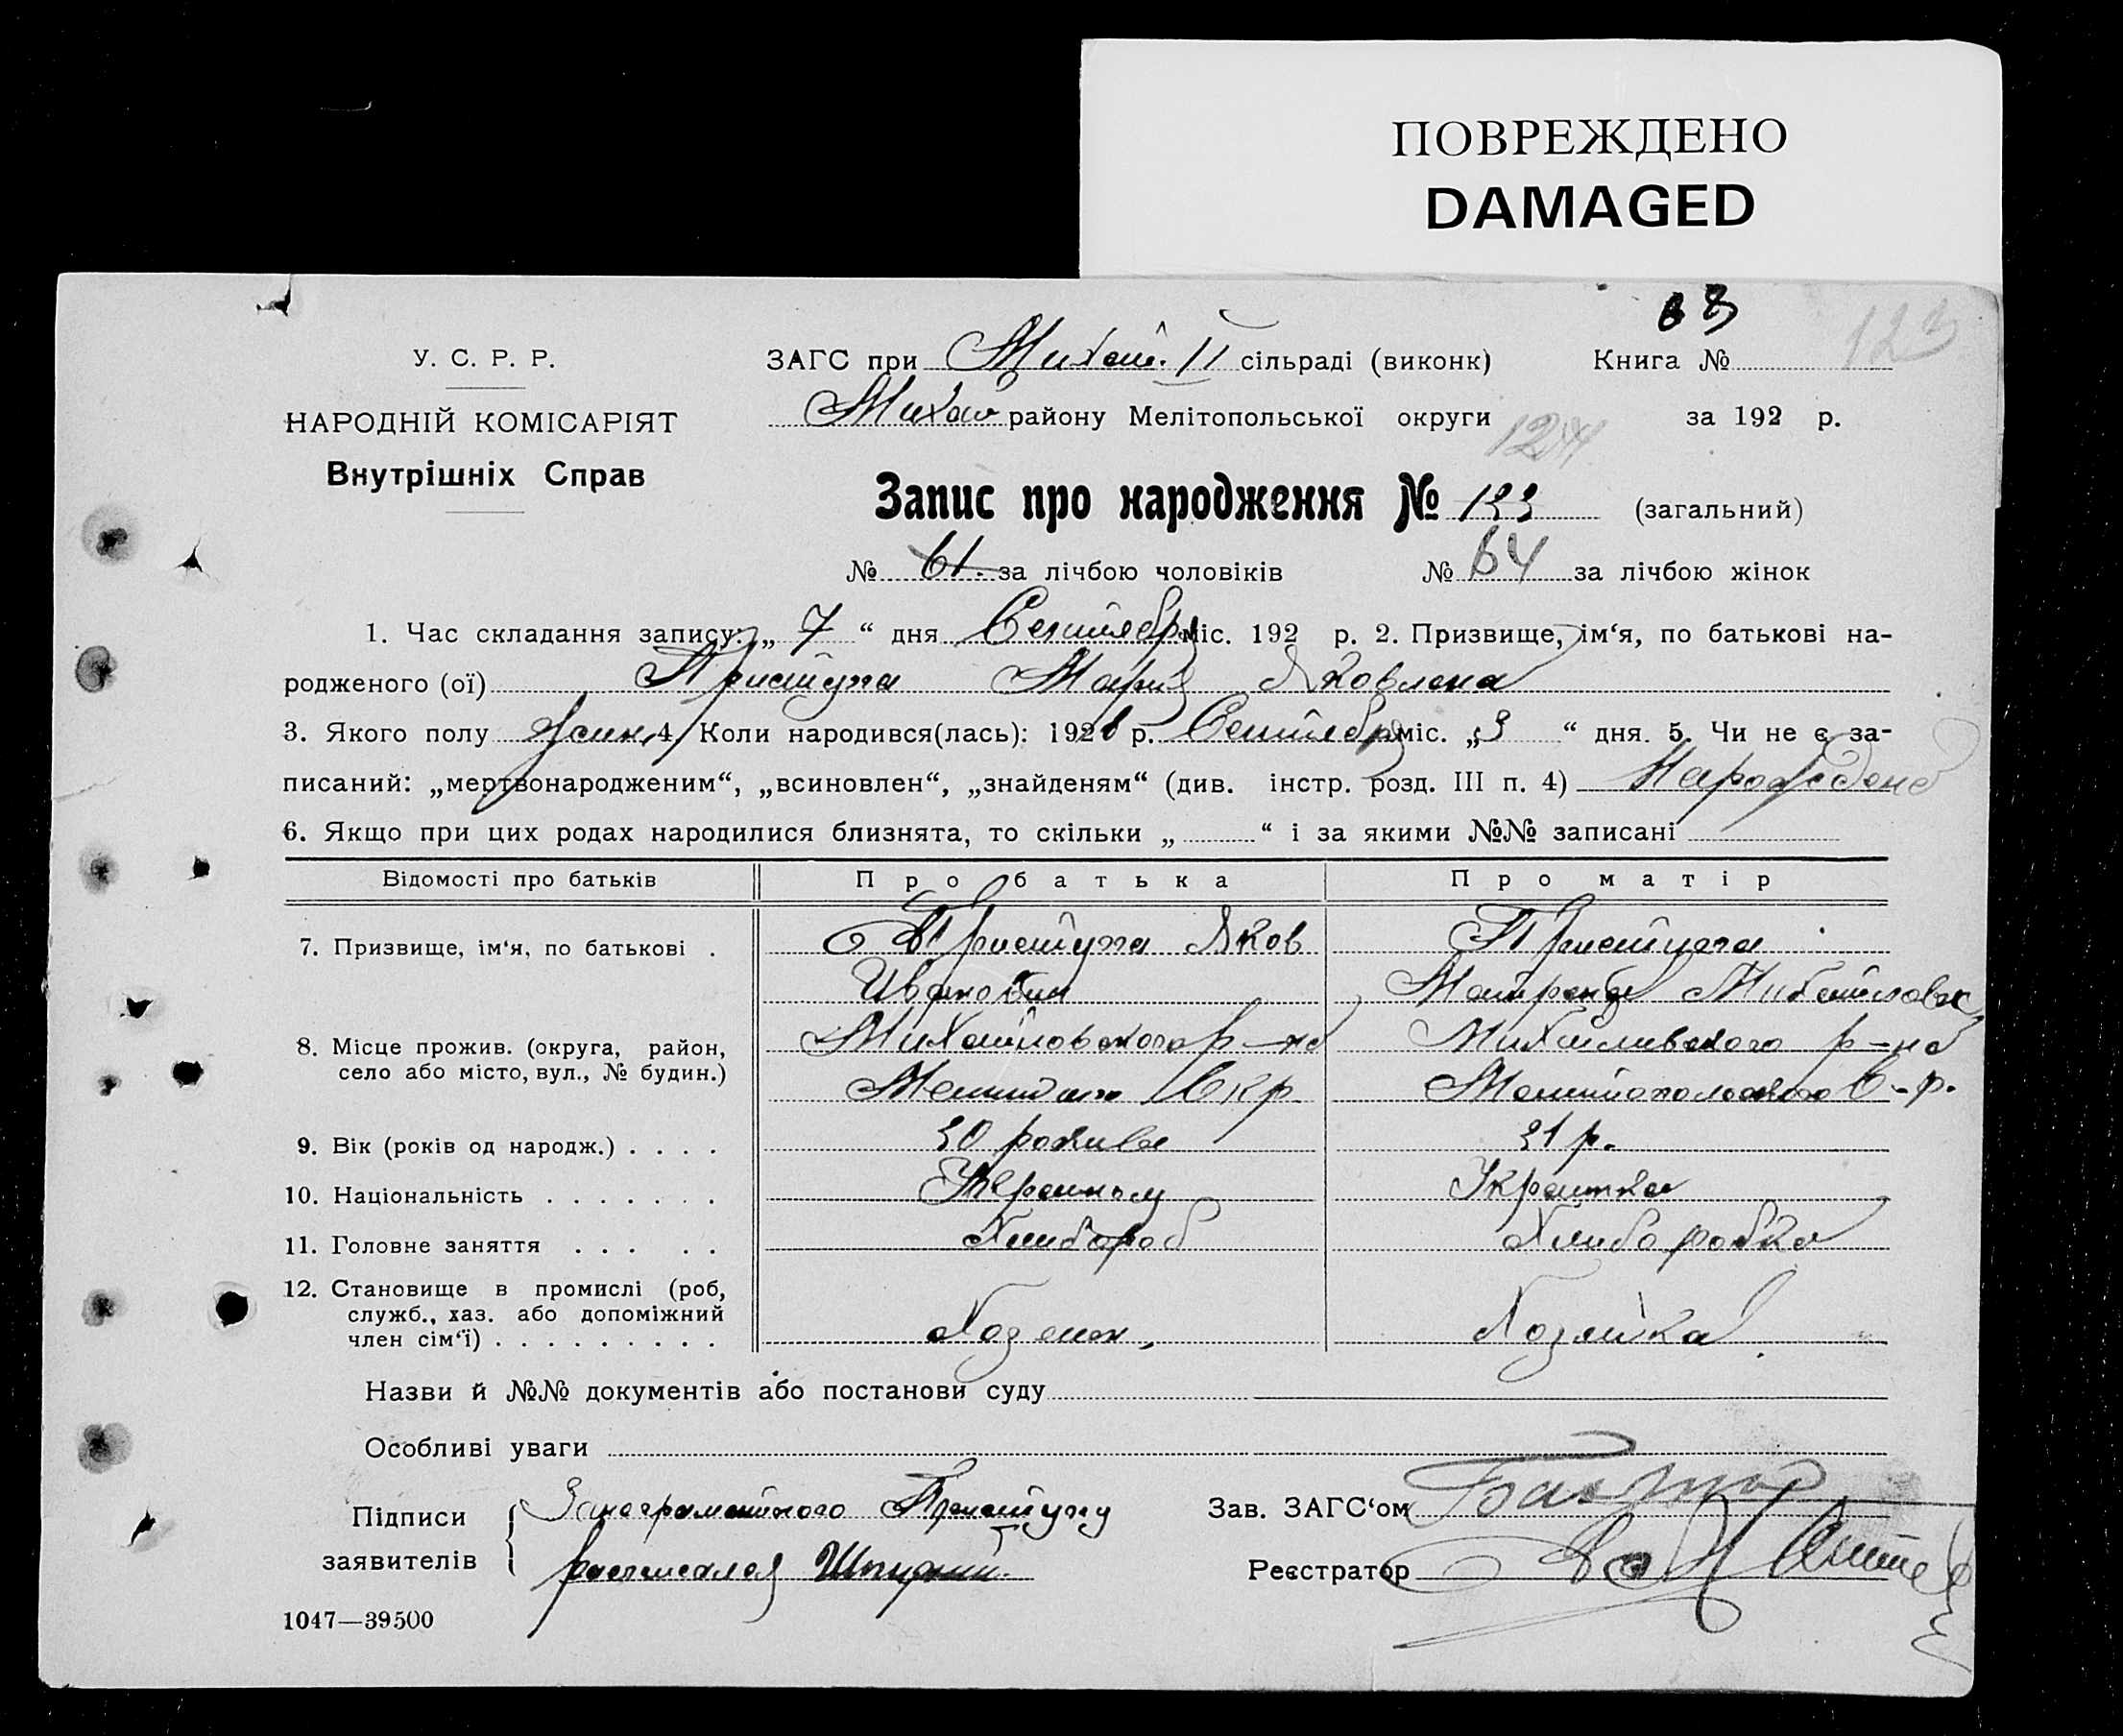 ПОВРЕЖДЕНО
DAMAGED
У. С. Р. Р.
НАРОДНІЙ КОМІСАРІЯТ
Внутрішніх Справ
ЗАГС при Михай. II сільраді (виконк) Книга №
Михай району Мелітопольської округи за 192 р.
123
124
Запис про народження № 123 (загальний)
№ 61. за лічбою чоловіків № 64 за лічбою жінок
1. Час складання запису: „ 7 “ дня Сентября міс. 192 р. 2. Призвище, ім‘я, по батькові на-
родженого (ої) Приступа Мария Яковлена
3. Якого полу жин. 4. Коли народився(лась): 192 р. Сентября міс. „3 “ дня. 5. Чи не є за-
писаний: „мертвонародженим“, „всиновлен“, „знайденям“ (див. інстр. розд. III п. 4)
6. Якщо при цих родах народилися близнята, то скільки „ “ і за якими №№ записані
Відомості про батьків Про батька Про матір
7. Призвище, ім‘я, по батькові . Приступа Яков Приступа
Иванович Михайловна
8. Місце прожив. (округа, район, село або місто, вул., № будин.) Михайловского р-на Михайливского р-на
Окр Мелитопольского О-р.
9. Вік (років од народж.) . . . . 30 рокив 31 р.
10. Національність . . . . . . . Украинец Украинка
11. Головне заняття . . . . . Хлибороб Хлиборобка
12. Становище в промислі (роб, служб., хаз. або допоміжний член сім‘ї) . . . . . . . . . Хозяин Хозяйка
Назви й №№ документів або постанови суду
Особливі уваги
Підписи заявителів { За неграмотного Приступу
расписался
Зав. ЗАГС‘ом
Реєстратор
1047—39500